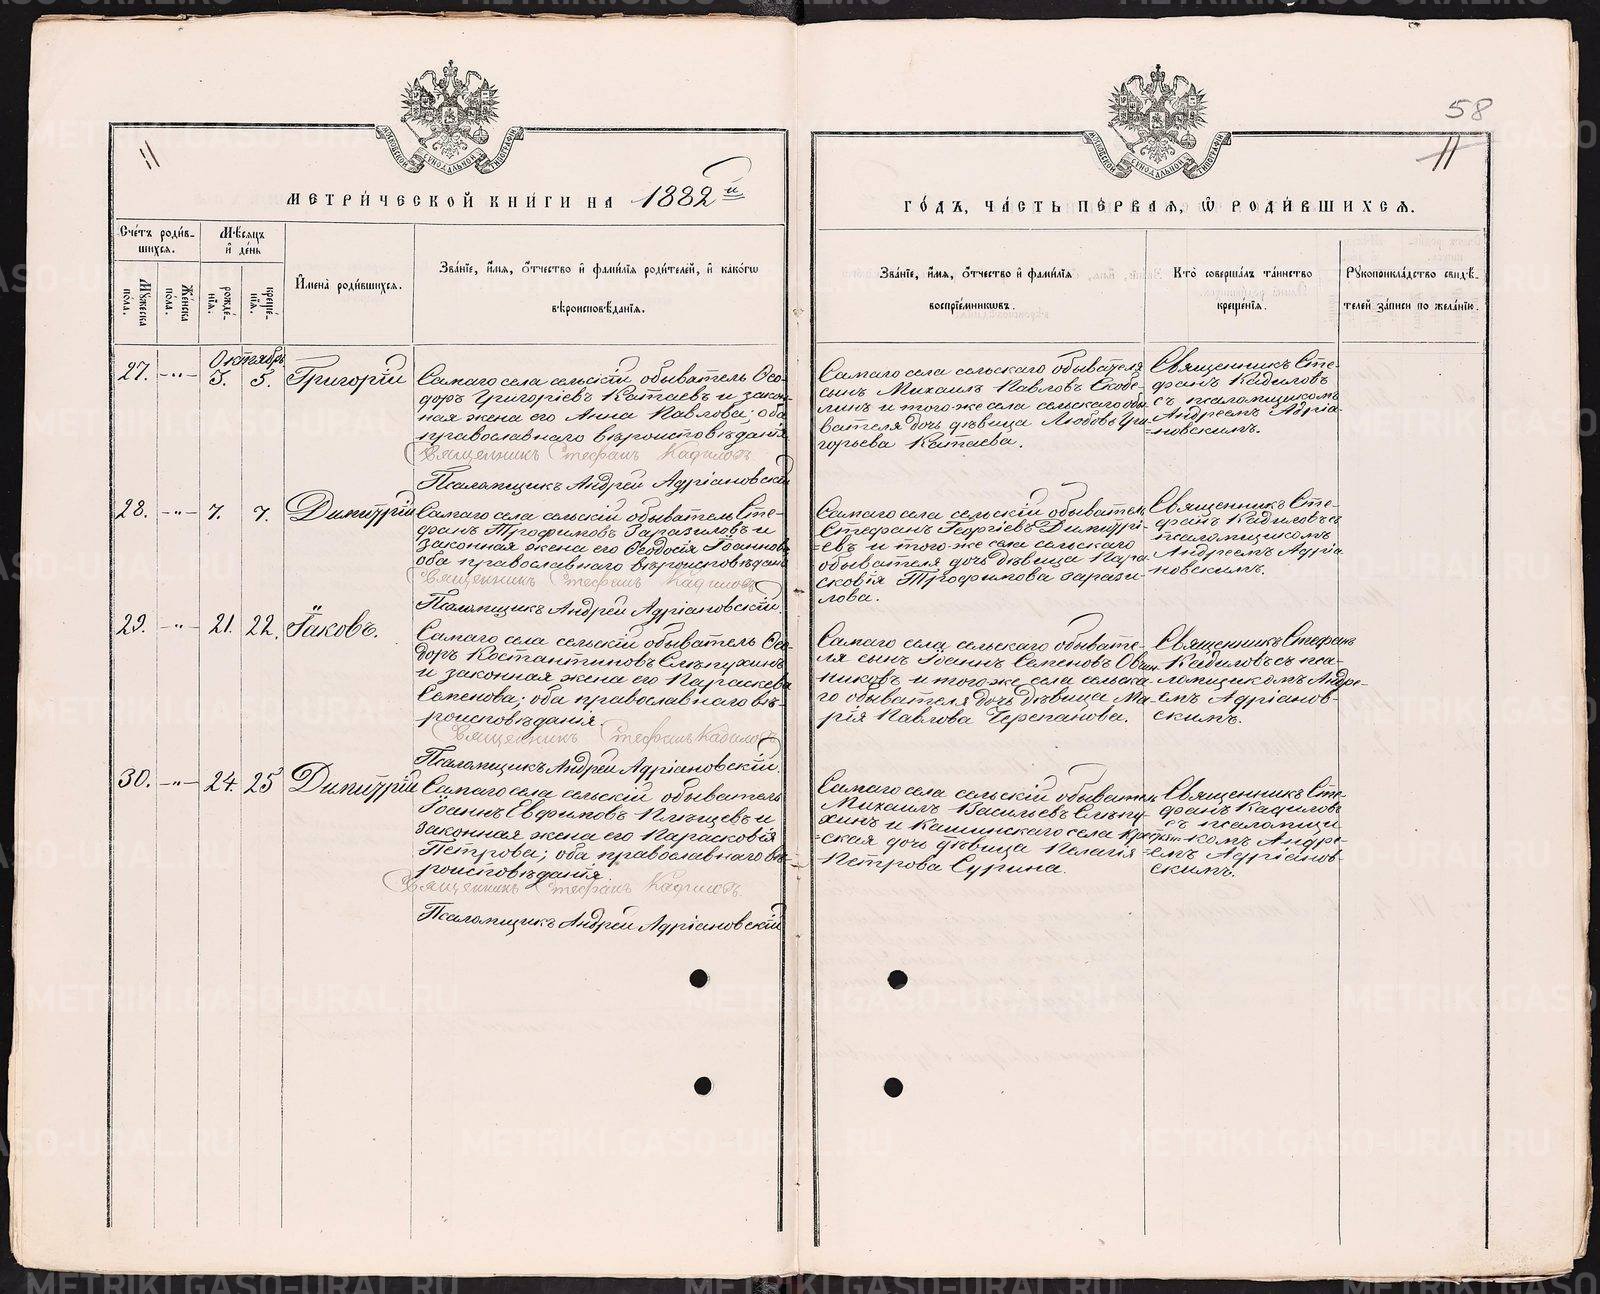 58
11
11
МОСКОВСКОЙ СѴНОДАЛЬНОЙ ТИПОГРАФІИ
МОСКОВСКОЙ СѴНОДАЛЬНОЙ ТИПОГРАФІИ
МЕТРИ́ЧЕСКОЙ КНИ́ГИ НА 1882й
ГО́ДЪ, ЧА́СТЬ ПЕ́РВАЯ, Ѡ РОДИ́ВШИХСЯ.
Сче́тъ роди́в-
шихся.
Мѣсяцъ
и де́нь
Мужеска
пола.
Женска
пола.
рожде́-
нїя.
креще́-
нїя.
Имена̀ роди́вшихся.
Зва́нїе, и́мя, о́тчество и фами́лїя роди́телей, и како́гѡ
вѣроисповѣ́данїя.
Зва́нїе, и́мя, о́тчество и фами́лїя
воспрїе́мникѡвъ.
Кто̀ соверша́лъ та́инство
креще́нїя.
Рукоприкла́дство свидѣ́-
телей за́писи по жела́нїю.
Октябрь
27. -"- 3. 5. Григорій
Самаго села сельскій обыватель Ѳео-
доръ Григоріевъ Катаевъ и закон-
ная жена его Анна Павлова; оба
православнаго вѣроисповѣданія
Священникъ Стефанъ Кадиловъ
Псаломщикъ Андрей Адріановскій
Самаго села сельскаго обывателя
сынъ Михаилъ Павловъ Скобе-
линъ и того-же села сельскаго обы-
вателя дочь дѣвица Любовь Гри-
горьева Катаева.
Священникъ Сте-
фанъ Кадиловъ
съ псаломщикомъ
Андреемъ Адріа-
новскимъ.
28. -"- 7. 7. Димитрій
Самаго села сельскій обыватель Сте-
фанъ Трофимовъ Гаразиловъ и
законная жена его Ѳеодосія Іоаннова
оба православнаго вѣроисповѣданія
Священникъ Стефанъ Кадиловъ
Псаломщикъ Андрей Адріановскій.
Самаго села сельскій обыватель
Стефанъ Георгіевъ Димитрі-
евъ и того-же села сельскаго
обывателя дочь дѣвица Пара-
сковія Трофимова Гарази-
лова.
Священникъ Сте-
фанъ Кадиловъ съ
псаломщикомъ
Андреемъ Адріа-
новскимъ.
29. -"- 21. 22. Іаковъ.
Самаго села сельскій обыватель Ѳео-
доръ Костантиновъ Слѣпухинъ
и законная жена его Параскева
Семенова; оба православнаго вѣ-
роисповѣданія.
Священникъ Стефанъ Кадиловъ
Псаломщикъ Андрей Адріановскій.
Самаго села сельскаго обывате-
ля сынъ Іоаннъ Семеновъ Овчин-
никовъ и того-же села сельска-
го обывателя дочь дѣвица Ма-
рія Павлова Черепанова.
Священникъ Стефанъ
Кадиловъ съ пса-
ломщикомъ Андре-
емъ Адріанов-
скимъ.
30. -"- 24. 25 Димитрій
Самаго села сельскій обыватель
Іоаннъ Евфимовъ Плѣщевъ и
законная жена его Парасковія
Петрова; оба православнаго вѣ-
роисповѣданія.
Священникъ Стефанъ Кадиловъ
Псаломщикъ Андрей Адріановскій
Самаго села сельскій обыватель
Михаилъ Васильевъ Слѣпу-
хинъ и Кашинскаго села Крестьян-
ская дочь дѣвица Пелагія
Петрова Сурина.
Священникъ Сте-
фанъ Кадиловъ
съ псаломщи-
комъ Андре-
емъ Адріанов-
скимъ.
METRIKI.GASO-URAL.RU